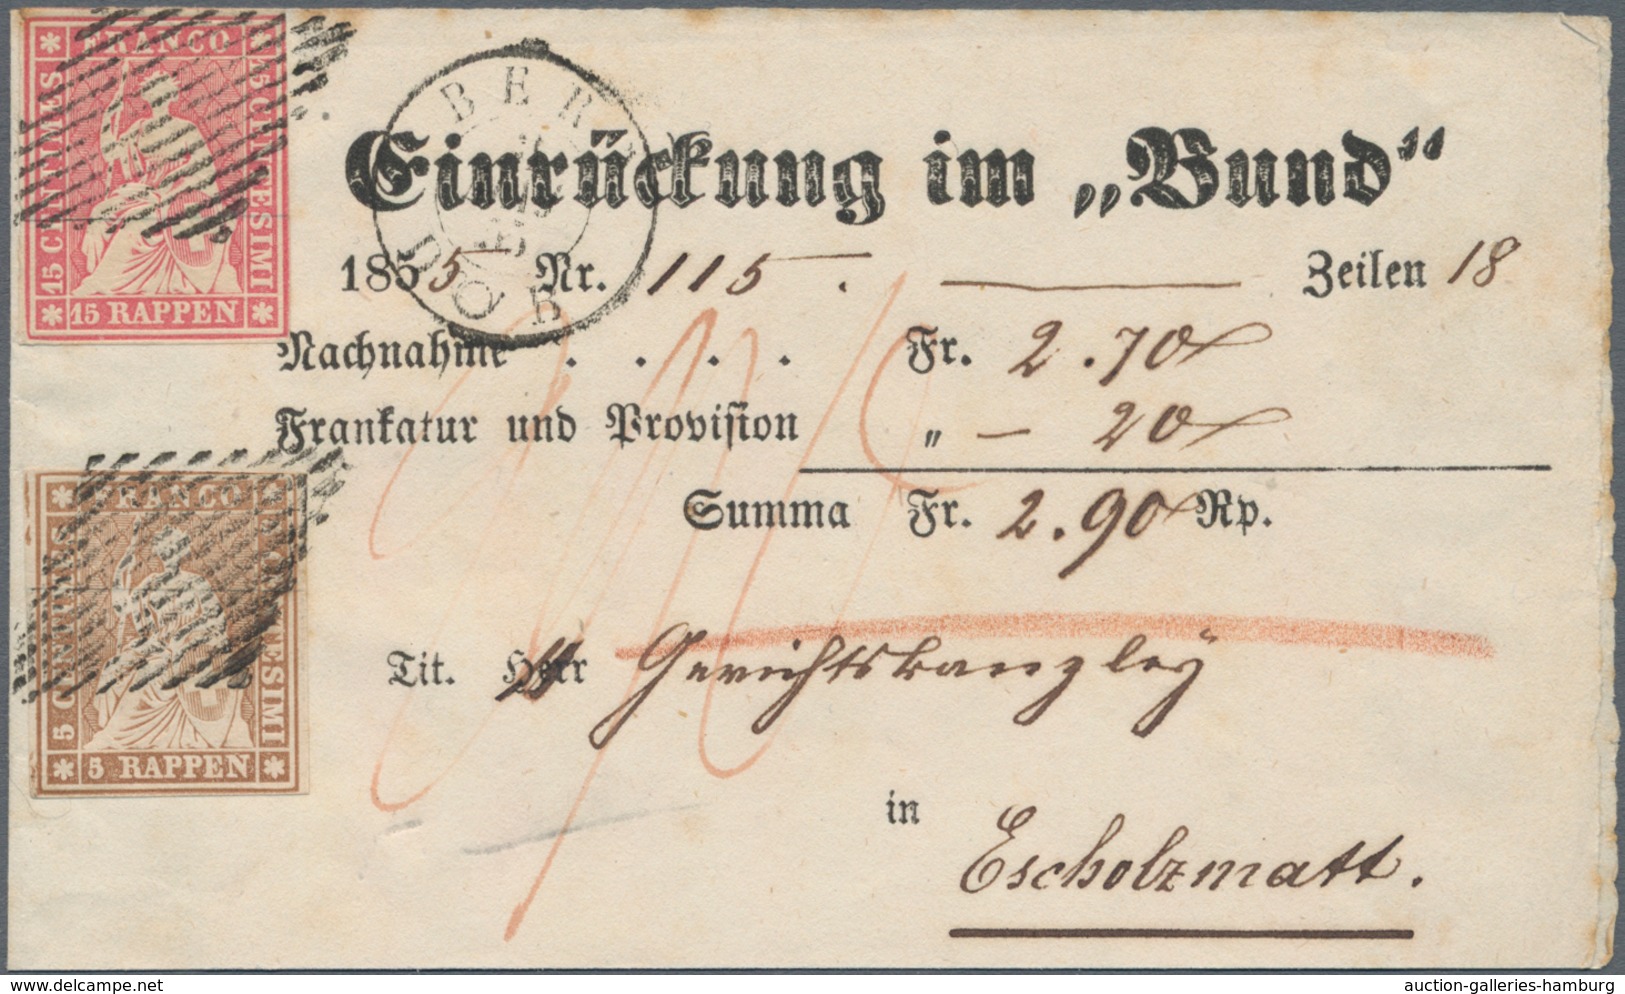 FRANCO
15 CENTIMES
15 CENTESIMI
15 RAPPEN
BERN
Einrückung im „Bund“
1855 Nr. 115. Zeilen 18
Nachnahme . . . . Fr. 2.70
Frankatur und Provision „ — 20
Summa Fr. 2.90 Rp.
FRANCO
5 CENTIMES
5 CENTESIMI
5 RAPPEN
Tit. Herr Gerichtskanzley
in
Escholzmatt.
auction-galleries-hamburg